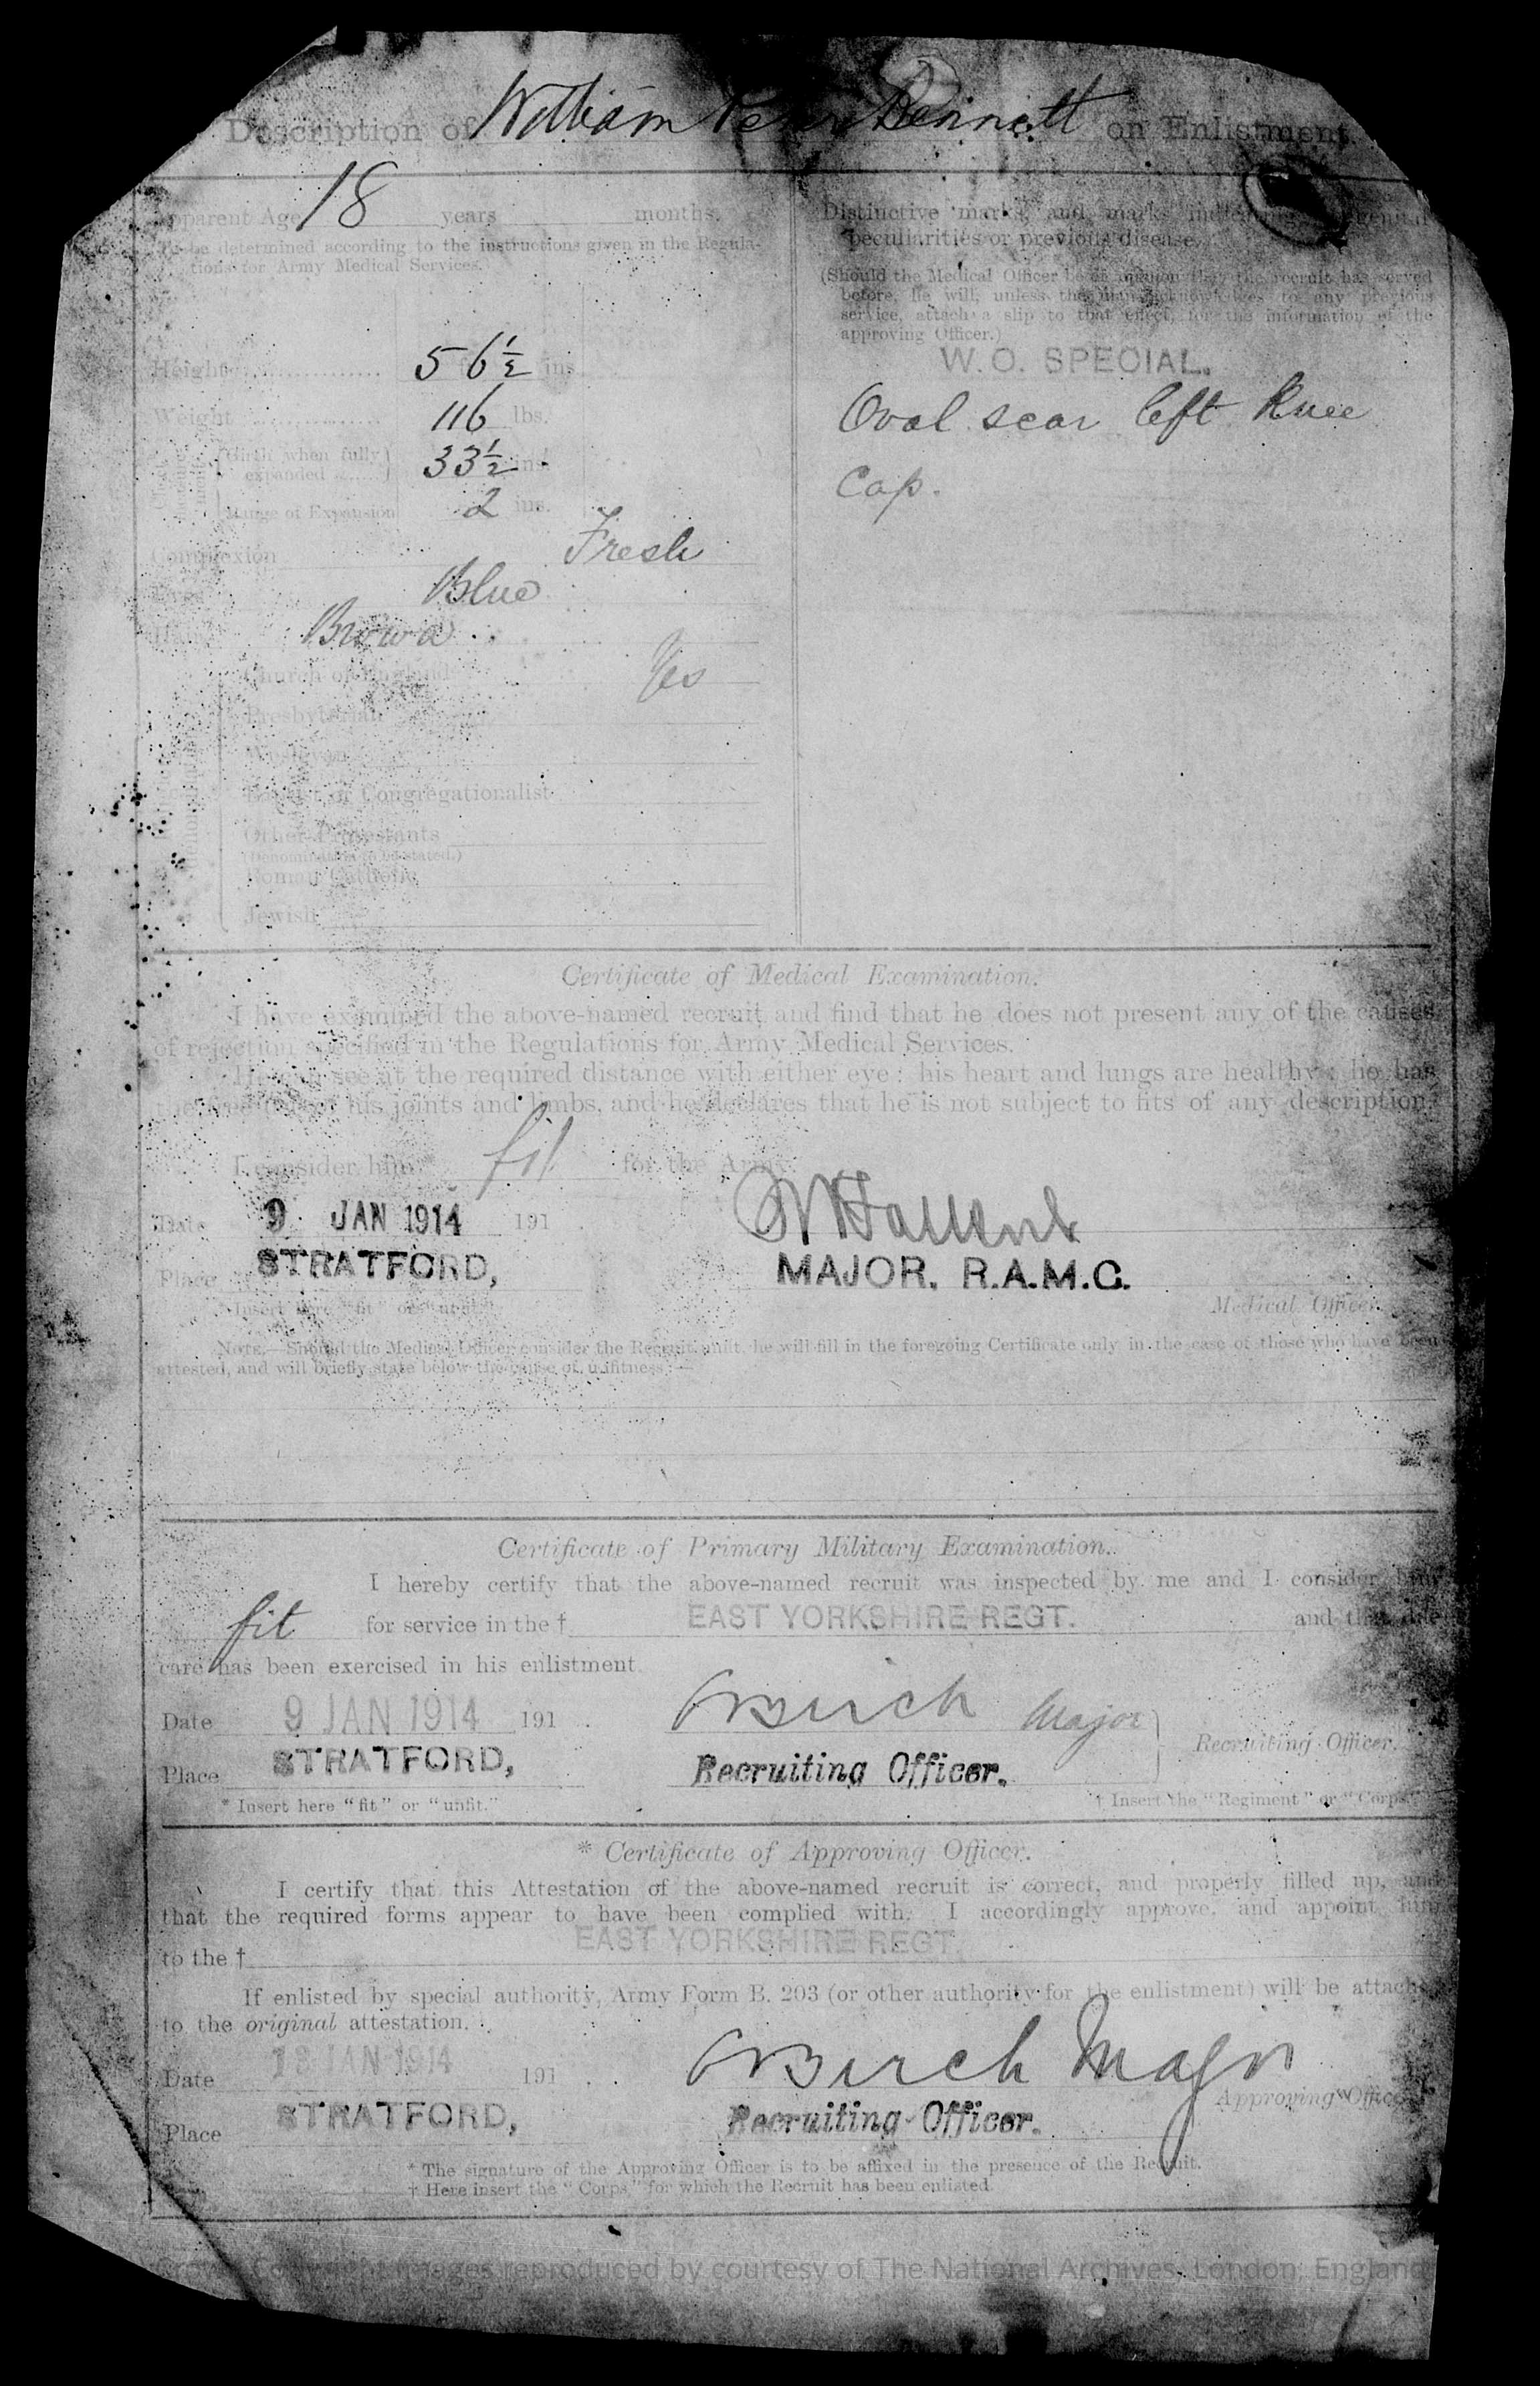 Description of William Bennett on Enlistment
Apparent Age 18 years months.
To be determined according to the instructions given in the Regula-
tions for Army Medical Services.
Height 5 6½ ins.
Weight 116 lbs.
Girth when fully
expanded 33½ ins.
Range of Expansion 2 ins.
Complexion Fresh
Eyes Blue
Hair Brown
Church of England Yes
Presbyterian
Wesleyan
Baptist or Congregationalist
Other Protestants
(Denomination to be stated.)
Roman Catholic
Jewish
Distinctive marks, and marks indicating congenital
peculiarities or previous disease.
(Should the Medical Officer be of opinion that the recruit has served
before, he will, unless the man acknowledges to any previous
service, attach a slip to that effect, for the information of the
approving Officer.)
W.O. SPECIAL.
Oval scar left Knee
Cap.
Certificate of Medical Examination.
I have examined the above-named recruit and find that he does not present any of the causes
of rejection specified in the Regulations for Army Medical Services.
He can see at the required distance with either eye; his heart and lungs are healthy; he has
the free use of his joints and limbs, and he declares that he is not subject to fits of any description.
I consider him * fit for the Army.
Date 9 JAN 1914 191
Place STRATFORD,
MAJOR, R.A.M.C.
Medical Officer.
* Insert here "fit" or "unfit."
NOTE.—Should the Medical Officer consider the Recruit unfit, he will fill in the foregoing Certificate only in the case of those who have been
attested, and will briefly state below the cause of unfitness:—
Certificate of Primary Military Examination.
I hereby certify that the above-named recruit was inspected by me and I consider him
fit for service in the † EAST YORKSHIRE REGT. and that due
care has been exercised in his enlistment
Date 9 JAN 1914 191
Birch Major
Recruiting Officer.
Place STRATFORD,
Recruiting Officer.
* Insert here "fit" or "unfit."
† Insert the "Regiment" or "Corps."
* Certificate of Approving Officer.
I certify that this Attestation of the above-named recruit is correct, and properly filled up, and
that the required forms appear to have been complied with. I accordingly approve, and appoint him
to the † EAST YORKSHIRE REGT.
If enlisted by special authority, Army Form B. 203 (or other authority for the enlistment) will be attached
to the original attestation.
Date 13 JAN 1914 191
Birch Major
Approving Officer
Place STRATFORD,
Recruiting Officer.
* The signature of the Approving Officer is to be affixed in the presence of the Recruit.
† Here insert the "Corps" for which the Recruit has been enlisted.
Crown Copyright Images reproduced by courtesy of The National Archives, London, England